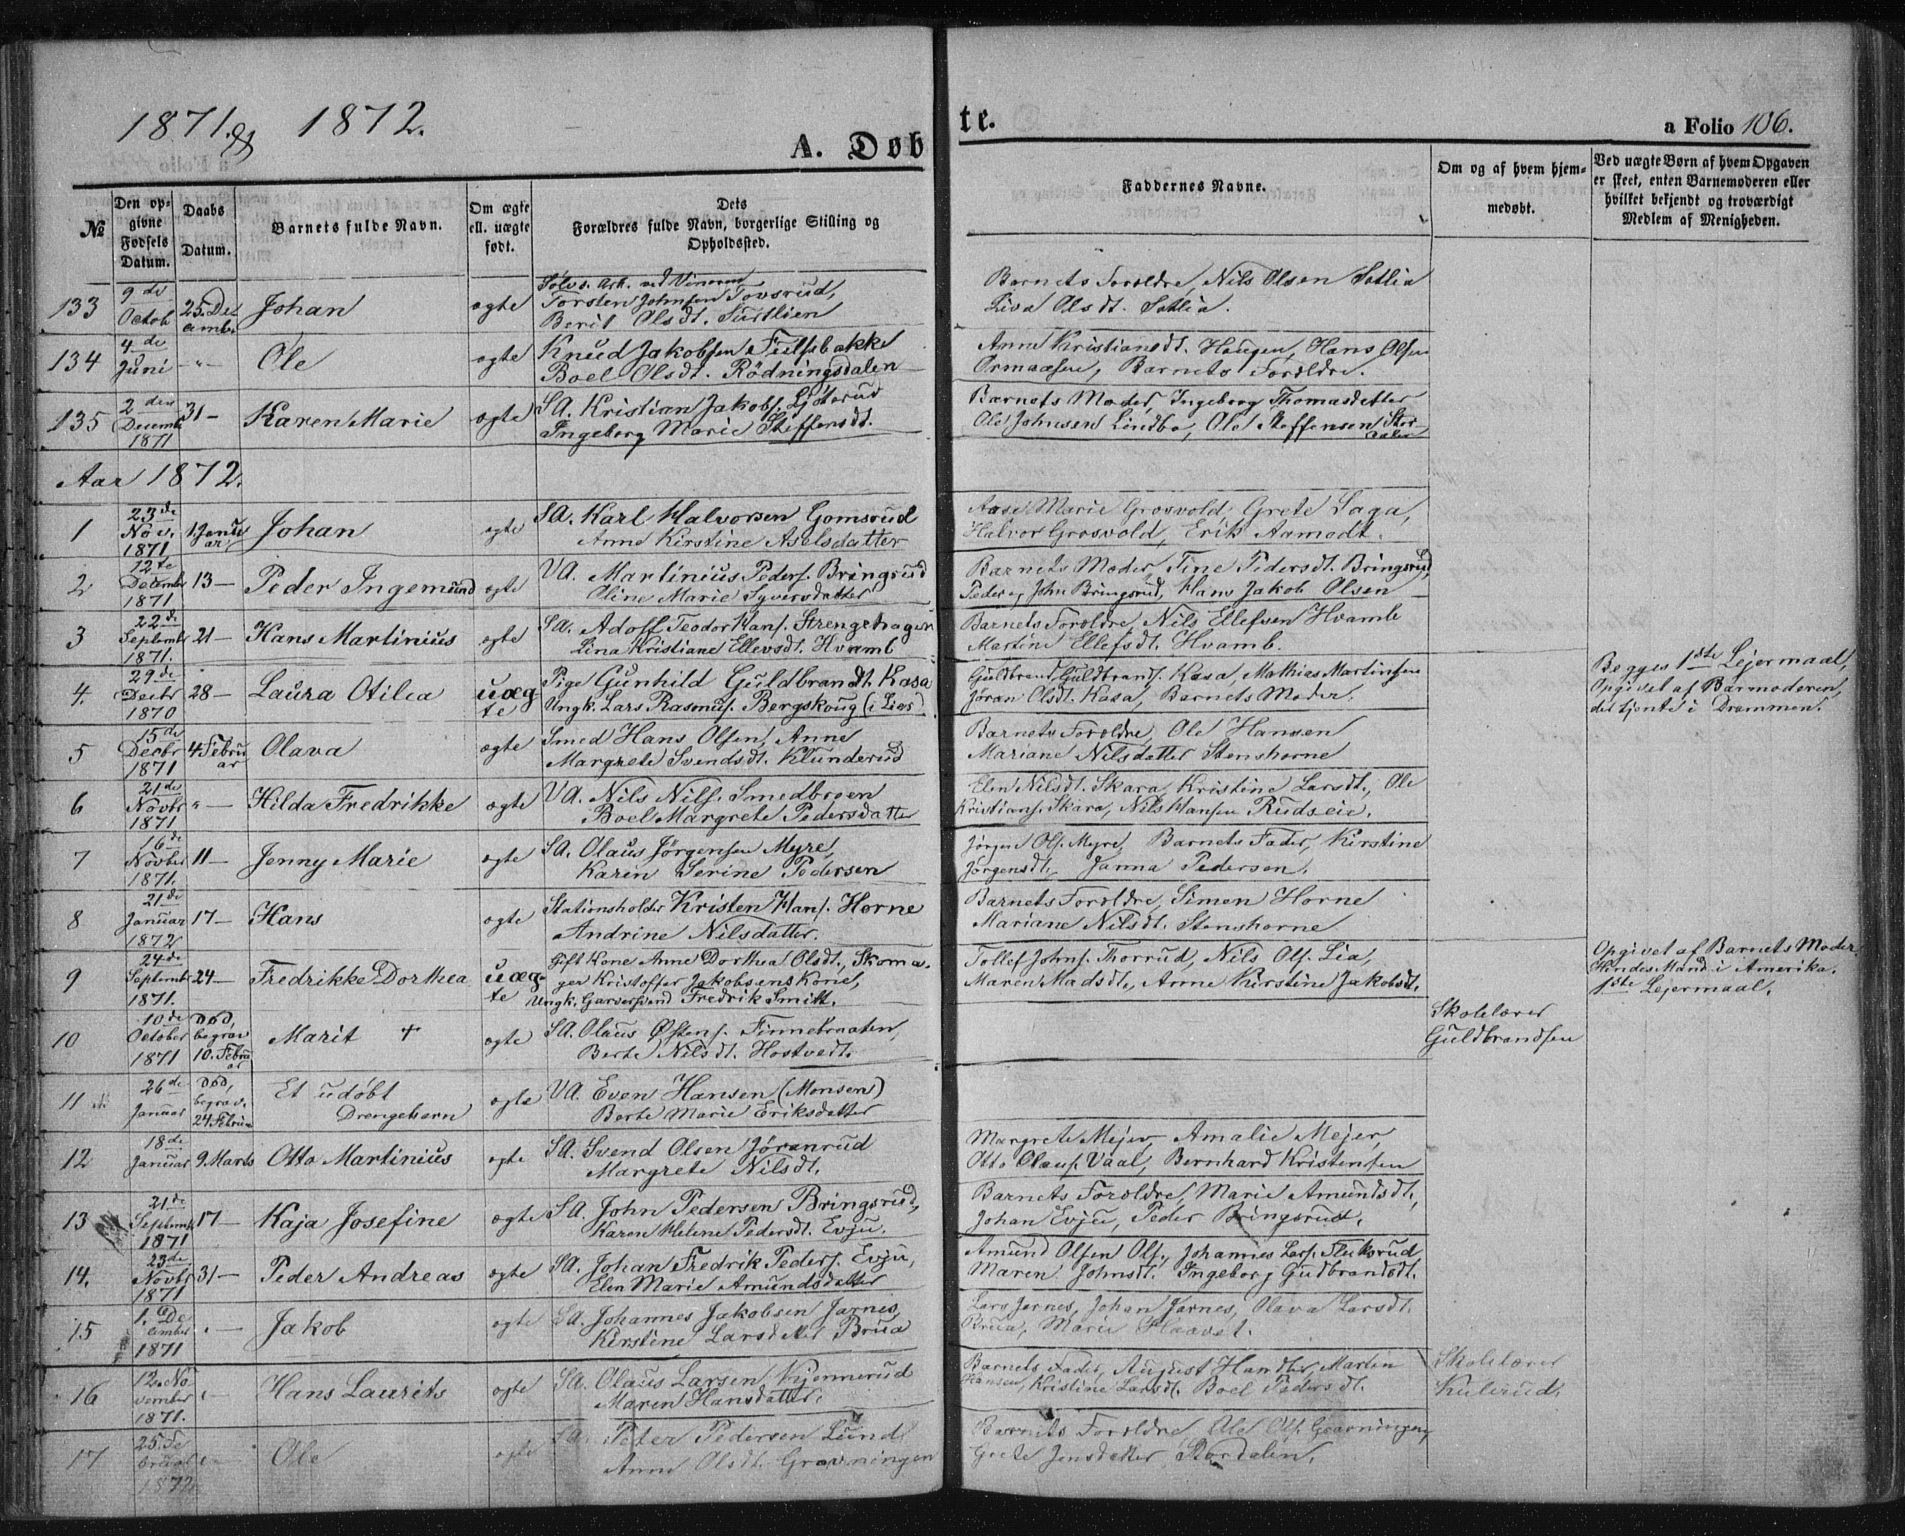 1871. & 1872.
A. Døbte.
a Folio 106.
№
Den opgivne Fødsels Datum.
Daabs Datum.
Barnets fulde Navn.
Om ægte ell. uægte født.
Dets Forældres fulde Navn, borgerlige Stilling og Opholdssted.
Faddernes Navne.
Om og af hvem hjemmedøbt.
Ved uægte Børn af hvem Opgaven er skeet, enten Barnemoderen eller hvilket bekjendt og troværdigt Medlem af Menigheden.
133 9de Octob 25. December Johan ægte Sølvv. Ark. ved Torsten Johnsen Tovsrud, Berit Olsdt. Barnets Forældre, Nils Olsen Sætlia Liva Olsdt. Sætlia.
134 4de Juni -"- Ole ægte Knud Jakobsen Boel Olsdt. Rødningsdalen Anne Kristiansdt. Haugen, Hans Olsen Ormaasen, Barnets Forældre.
135 2den Decemb 1871 31- Karen Marie ægte SA. Kristian Jakobs. Ingeborg Marie Steffensdt. Barnets Moder, Ingeborg Thomasdatter Ole Johnsen Lindbo, Ole Steffensen Stordalen
Aar 1872.
1 23de Nov. 1871 1 Januar Johan ægte SA. Karl Halvorsen Gomsrud Anne Kirstine Axelsdatter Aase Marie Grosvold Grete Saga, Halvor Grosvold, Erik Aamodt.
2 12te Decembr 1871 13- Peder Ingemund ægte VA. Martinius Peders. Bringsrud Oline Marie Syversdatter Barnets Moder, Tine Pedersdt. Bringsrud, Peder og John Bringsrud, Hans Jakob Olsen
3 22de Septembr 1871. 21- Hans Martinius ægte SA. Adolf Teodor Hans. Strengehagen Lina Kristiane Ellevsdt. Hvamb Barnets Forældre, Nils Ellefsen Hvamb Martine Ellefsdt. Hvamb.
4. 29de Decbr 1870 28- Laura Otilea uægte Pige Gunhild Guldbrandsdt. Kasa Ungk. Lars Rasmus. Bergskoug (i Lier) Guldbrand Guldbrands. Kasa, Mathias Martinsen Jøran Olsdt. Kasa, Barnets Moder. Begges 1ste Lejermaal, Opgivet af Barmoderen, der tjente i Drammen.
5 15de Decbr 1871 4 Februar Olava ægte Smed Hans Olsen, Anne Margrete Svendsdt. Klunderud Barnets Forældre, Ole Hansen Mariane Nilsdatter Stenshorne
6 21de Novbr 1871 " - Hilda Fredrikke ægte VA. Nils Nils. Smedbroen Boel Margrete Pedersdatter Elen Nilsdt. Skara, Kristine Larsdt., Ole Kristians. Skara, Nils Hansen Rudseie.
7 16de Novber 1871. 11- Jenny Marie ægte SA. Olaus Jørgensen Myre, Karen Serine Pedersen Jørgen Ols. Myre, Barnets Fader, Kirstine Jørgensdt., Janna Pedersen.
8 21de Januar 1872 17- Hans ægte Stationsholder Kristen Hans. Horne Andrine Nilsdatter. Barnets Forældre, Simen Horne Mariane Nilsdt. Stenshorne
9 24de Septembr 1871. 24- Fredrikke Dorthea uægte Gift Kone Anne Dorthea Olsdt., Skomager Kristoffer Jakobsens Kone, Ungk. Garversvend Fredrik Smitt. Tollef Johns. Thorrud, Nils Ols. Lia, Maren Madsdt., Anne Kirstine Jakobsdt. Opgivet af Barnets Moder. Hendes Mand i Amerika. 1ste Lejermaal.
10 10de October 1871 Død, begrav 10. Februar Marit + ægte SA. Olaus Østens. Finnebraaten, Berte Nilsdt. Hostvedt. Skolelærer Guldbrandsen
11 26de Januar Død, begrav. 24 Februar Et udøbt Drengebarn ægte VA. Even Hansen (Monsen) Berte Marie Eriksdatter
12 18de Januar 9 Marts Otto Martinius ægte SA. Svend Olsen Jøranrud Margrete Nilsdt. Margrete Mejer, Amalie Mejer, Otto Olaus. Vaal, Bernhard Kristensen
13 21de Septembr 1871 17- Kaja Josefine ægte SA. John Pedersen Bringsrud, Karen Helene Pedersdt. Evju. Barnets Forældre, Marie Amundsdt., Johan Evju, Peder Bringsrud.
14. 23de Novbr 1871 31- Peder Andreas ægte SA. Johan Fredrik Peders. Evju, Elen Marie Amundsdatter Amund Olsen Ols., Johannes Lars. Fluksrud Maren Johnsdt. Ingeborg Gudbrandsdt.
15 1. December 1871 " - Jakob ægte SA. Johannes Jakobsen Jarnes, Kirstine Larsdatter Brua Lars Jarnes, Johan Jarnes, Olava Larsdt. Brua, Marie Haavet.
16 12. November 1871. " - Hans Laurits ægte SA. Olaus Larsen Maren Hansdatter. Barnets Fader, August Martin Hansen, Kristine Larsdt. Boel Pedersdt. Skolelærer Kulerud.
17 25. Februar 1872 " - Ole ægte SA. Peter Pedersen Lund, Anne Olsdt. Gravningen Barnets Forældre, Ole Ols. Gravningen, Grete Jensdatter Stordalen.